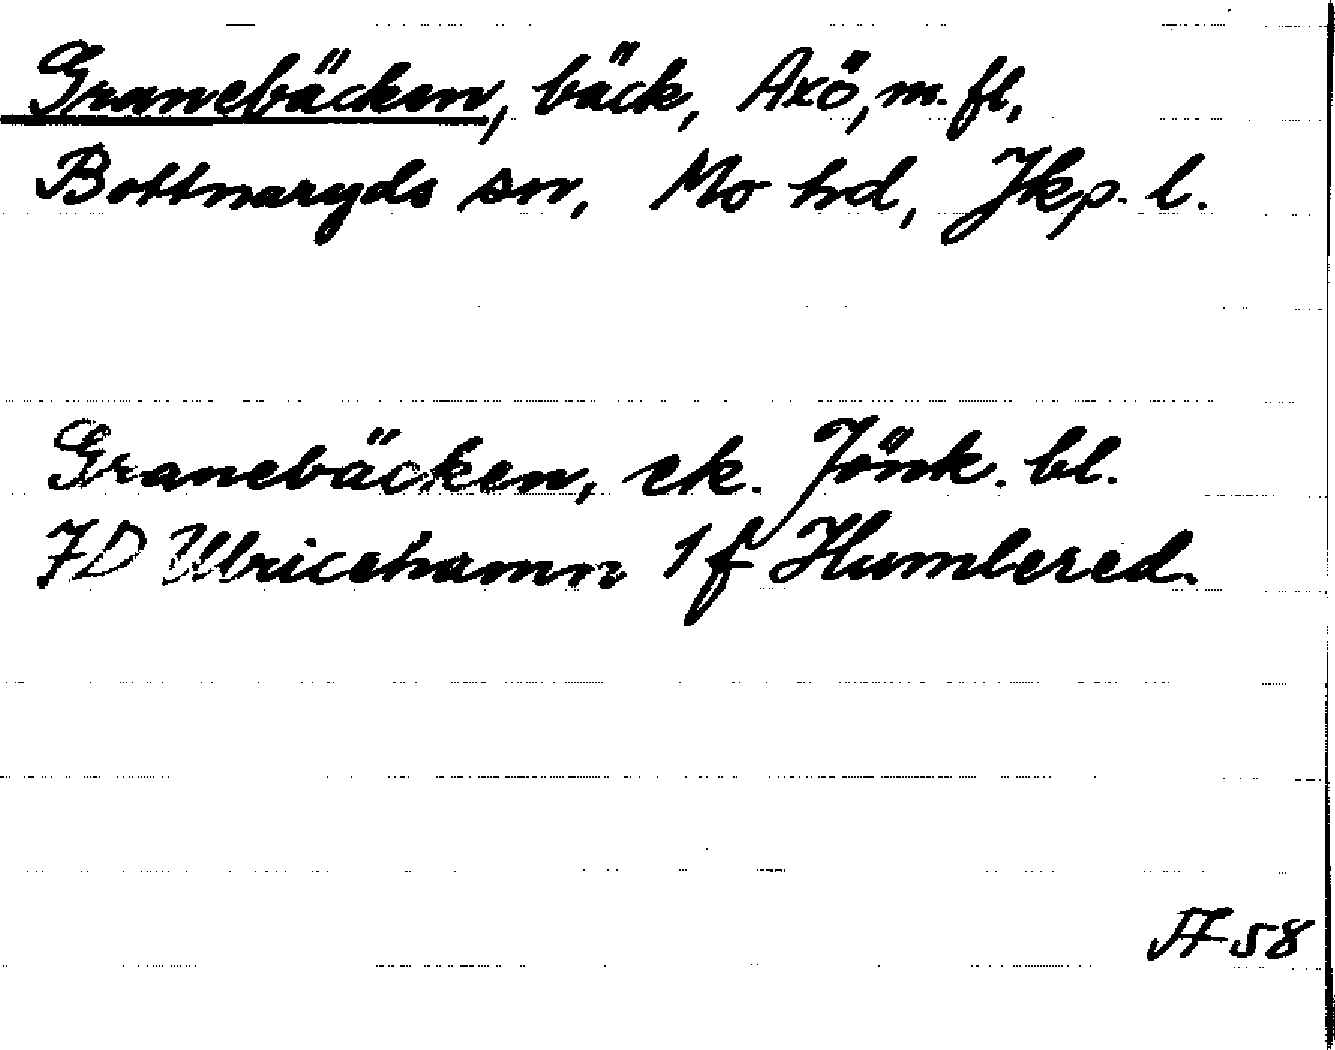 Granebäcken, bäck, Axö, m. fl,
Bottnaryds sn, Mo hd, Jkp. l.
Granebäcken, ek. Jönk. bl.
7D Ulricehamn 1f Humlered.
58